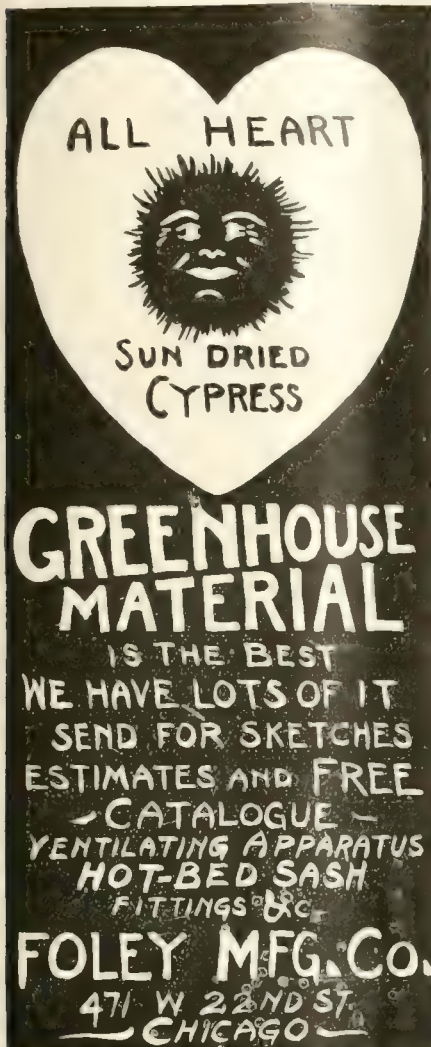 ALL HEART
SUN DRIED
CYPRESS
GREENHOUSE
MATERIAL
IS THE BEST
WE HAVE LOTS OF IT
SEND FOR SKETCHES
ESTIMATES AND FREE
— CATALOGUE —
VENTILATING APPARATUS
HOT-BED SASH
FITTINGS &C.
FOLEY MFG. CO.
471 W 22ND ST.
— CHICAGO —